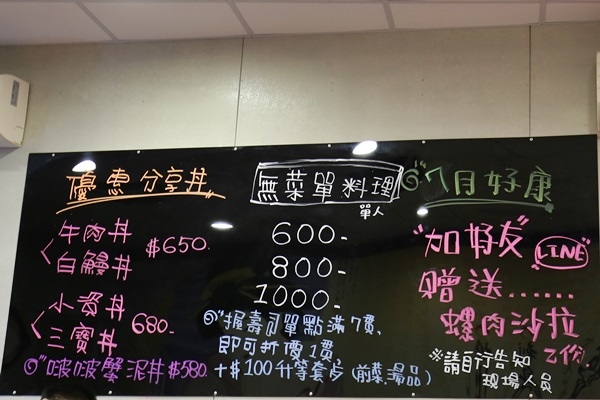 優惠分享丼
牛肉丼
白鰻丼
$650.
小資丼
三寶丼
680.-
"啵啵蟹泥丼$580.
無菜單料理
單人
600.-
800.-
1000.-
"握壽司單點滿7貫、
即可折價1貫、
+$100升等套卡(前菜、湯品)
"7月好康
"加好友"LINE"
贈送......
螺肉沙拉
乙份
※請自行告知
現場人員